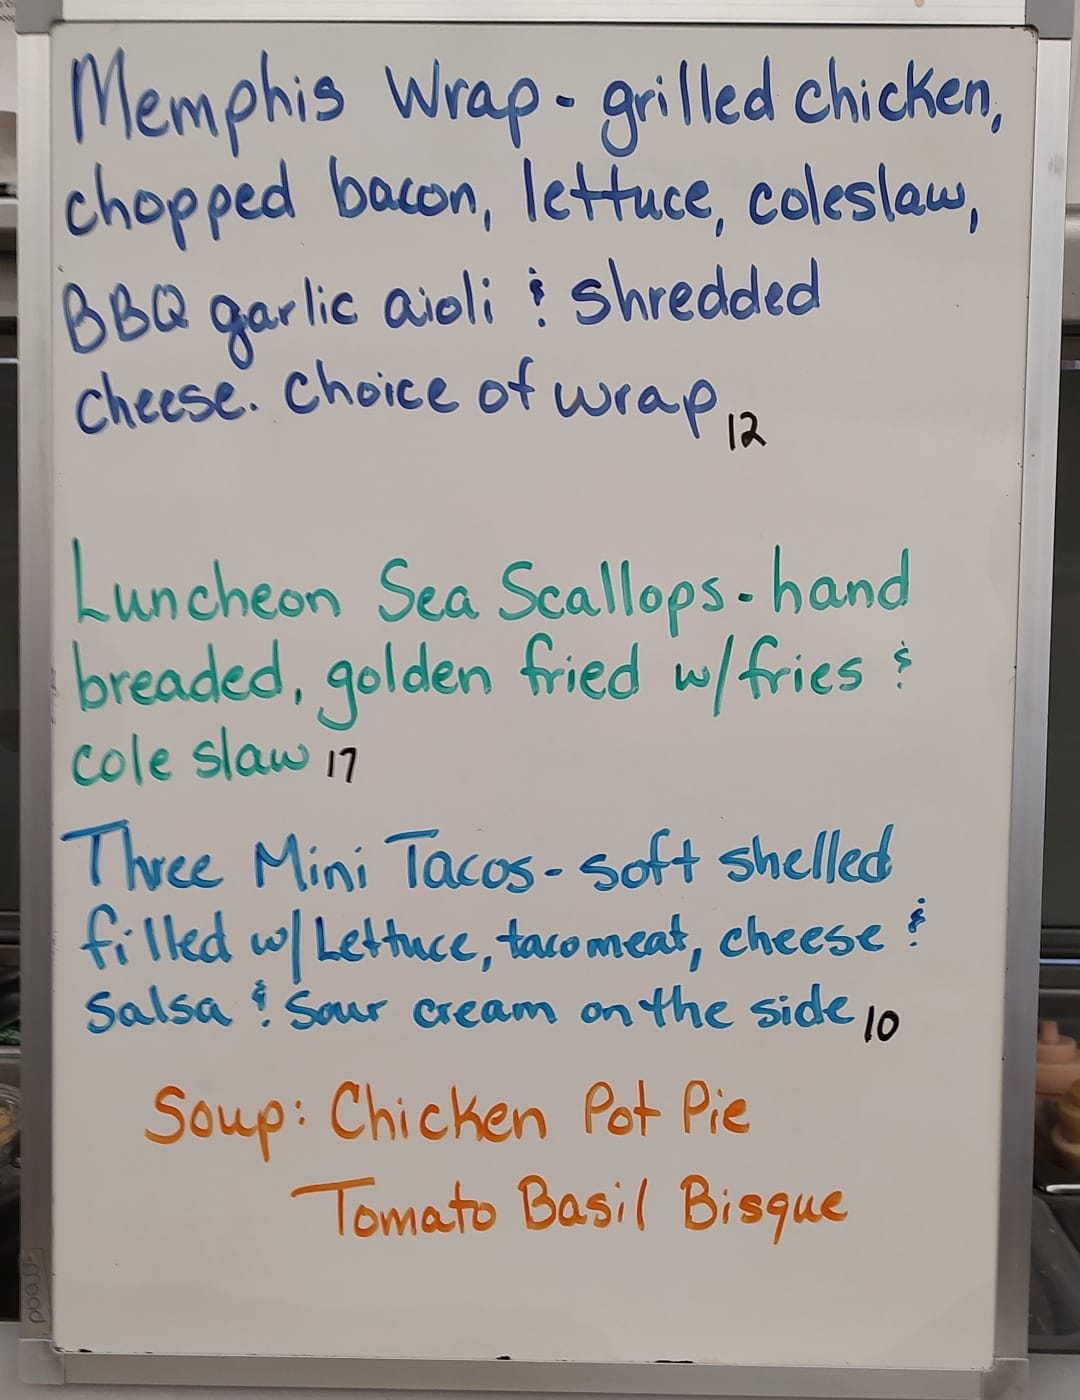 Memphis Wrap - grilled chicken,
chopped bacon, lettuce, coleslaw,
BBQ garlic aioli & shredded
cheese. Choice of wrap 12
Luncheon Sea Scallops - hand
breaded, golden fried w/fries &
cole slaw 17
Three Mini Tacos - soft shelled
filled w/ Lettuce, taco meat, cheese &
Salsa & Sour cream on the side 10
Soup: Chicken Pot Pie
Tomato Basil Bisque